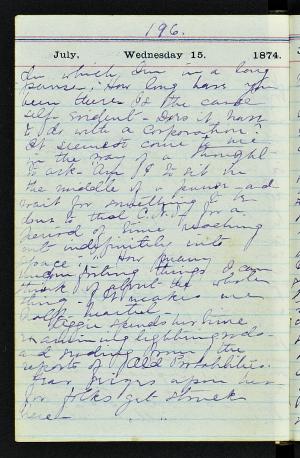 196.
July, Wednesday 15. 1874.
in which I'm in a long
pause: How long have you
been there Is the cause
self-evident - Does it have
to do with a Corporation?
It seems to come to me
in the way of a thought
to ask. Am I to sit in
the middle of a and
wait for something to be
done to that for a
period of time reaching
out indefinitely into
space?" How many
things I can
think of about the whole
thing - It makes me
half-hearted
spends her time
examining lightning rods -
and reading the
reports of Old Probabilities.
Fear upon her
for folks get struck
here